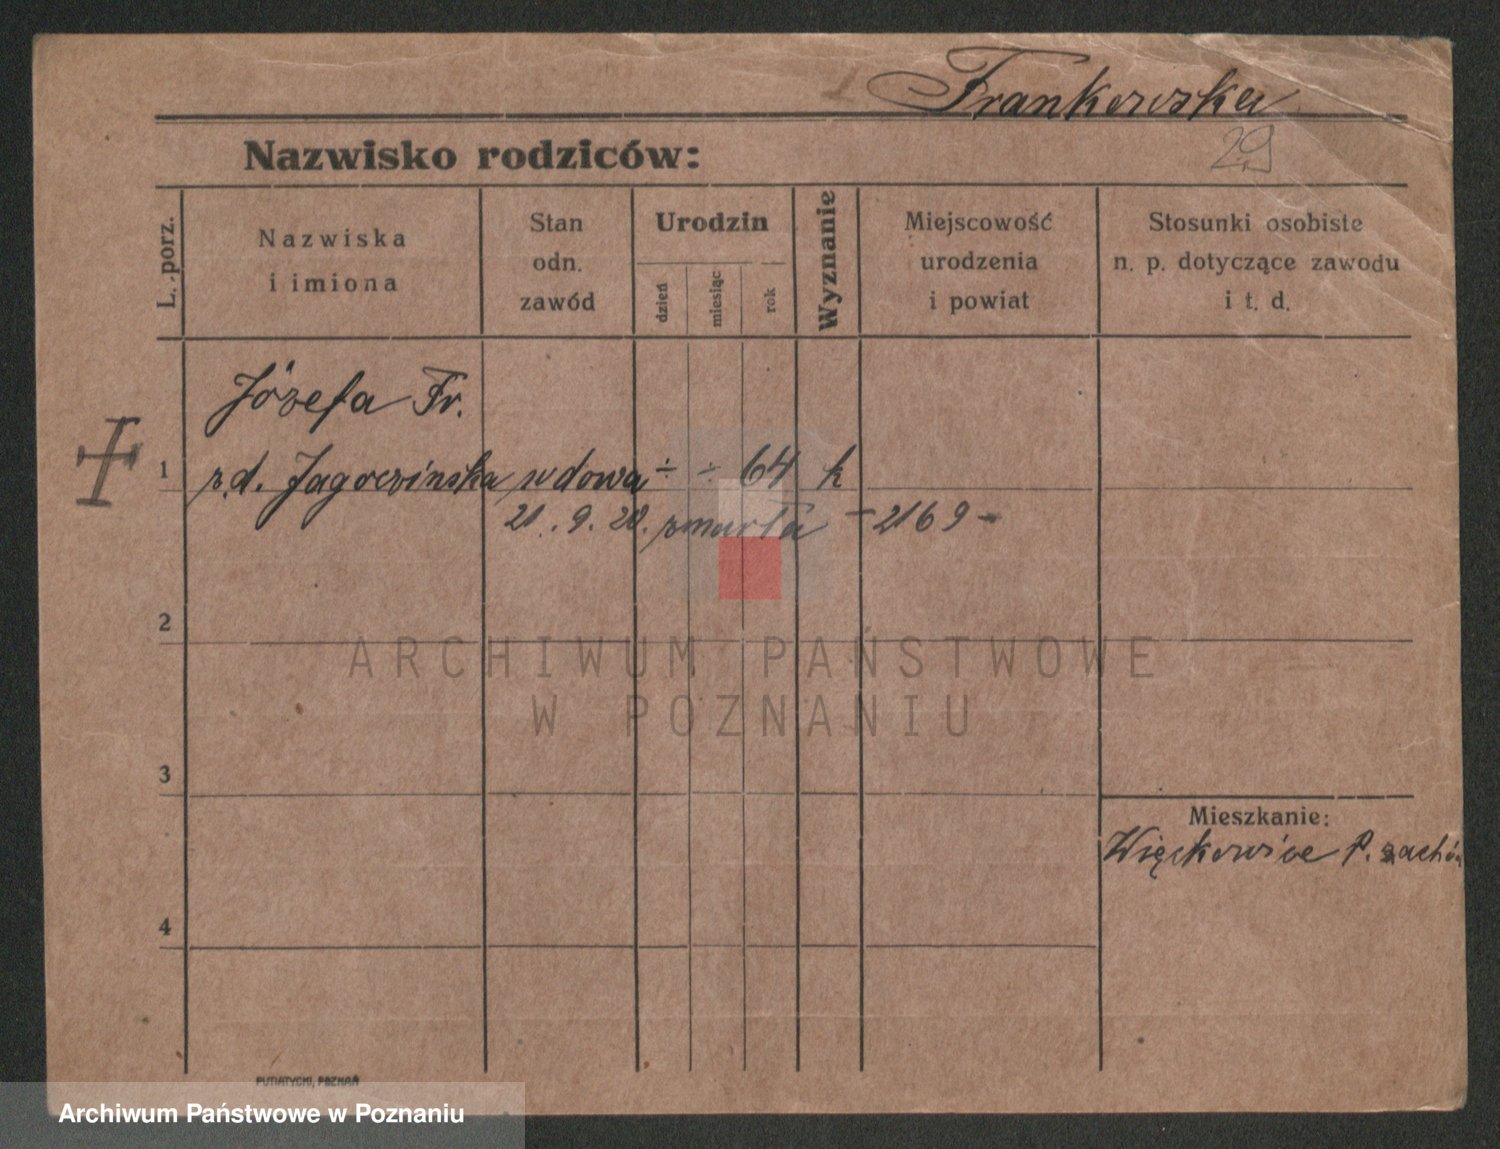 Frankowska
29
Nazwisko rodziców:
L. porz.
Nazwiska
i imiona
Stan
odn.
zawód
Urodzin
dzień
miesiąc
rok
Wyznanie
Miejscowość
urodzenia
i powiat
Stosunki osobiste
n. p. dotyczące zawodu
i t. d.
Józefa Fr.
1 z.d. wdowa ÷ ÷ 64 k
21. 9. 20. zmarła - 2169 -
2
ARCHIWUM PAŃSTWOWE
W POZNANIU
3
Mieszkanie:
Więckowice P. zachó
4
PUTIATYCKI, POZNAŃ
Archiwum Państwowe w Poznaniu